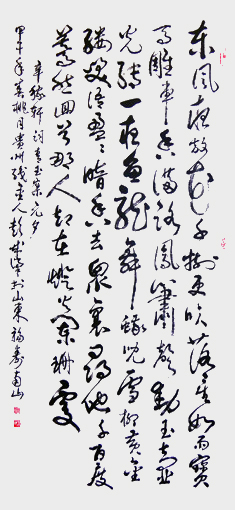 东风夜放花千树更吹落星如雨宝
马雕车香满路凤箫声动玉壶
光转一夜鱼龙舞蛾儿雪柳黄金
缕笑语盈盈暗香去众里寻他千百度
蓦然回首那人却在灯火阑珊处
辛弃疾词青玉案元夕
甲午年春桃月贵州残主人彭 书于山东福寿南山